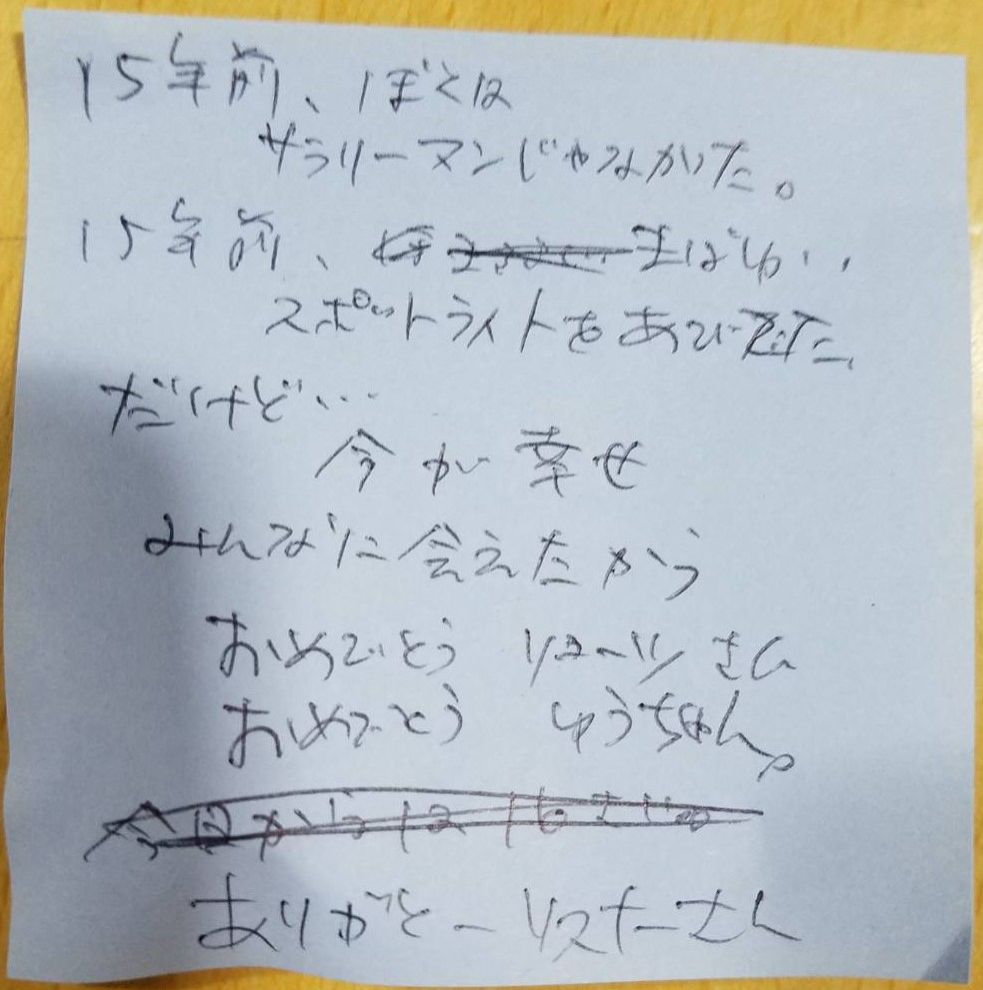 15年前、ぼくは
サラリーマンじゃなかった。
15年前、まばゆい
スポットライトをあびてた
だけど…
今が幸せ
みんなに会えたから
おめでとう さん
おめでとう ゆうちゃん。
今日から
ありがとーリスナーさん